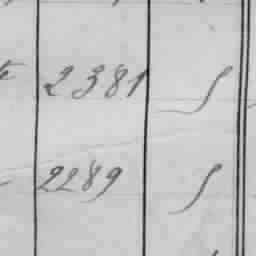 2381 S
2289 S